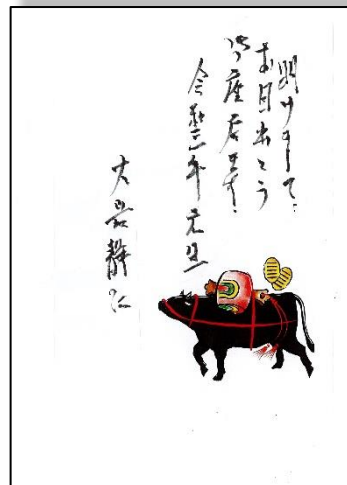 明けまして
お目出とう
御座居ます
令和三年元旦